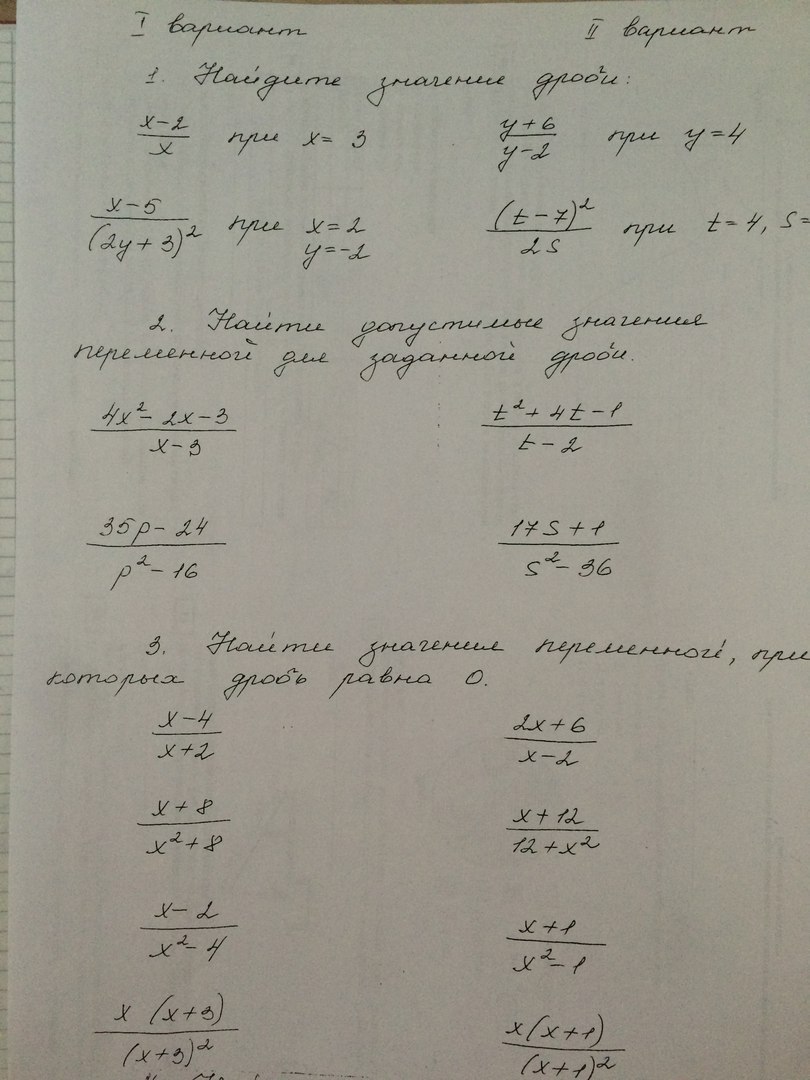 I вариант II вариант
1. Найдите значение дроби:
(x-2)/x при x = 3 (y+6)/(y-2) при y=4
(x-5)/(2y+3)² при x=2 y=-2 (t-7)²/2s при t=4, s=
2. Найти допустимые значения
переменной для заданной дроби.
(4x²-2x-3)/(x-3) (t²+4t-1)/(t-2)
(35p-24)/(p²-16) (17s+1)/(s²-36)
3. Найти значения переменной, при
которых дробь равна 0.
(x-4)/(x+2) (2x+6)/(x-2)
(x+8)/(x²+8) (x+12)/(12+x²)
(x-2)/(x²-4) (x+1)/(x²-1)
x(x+3)/(x+3)² x(x+1)/(x+1)²